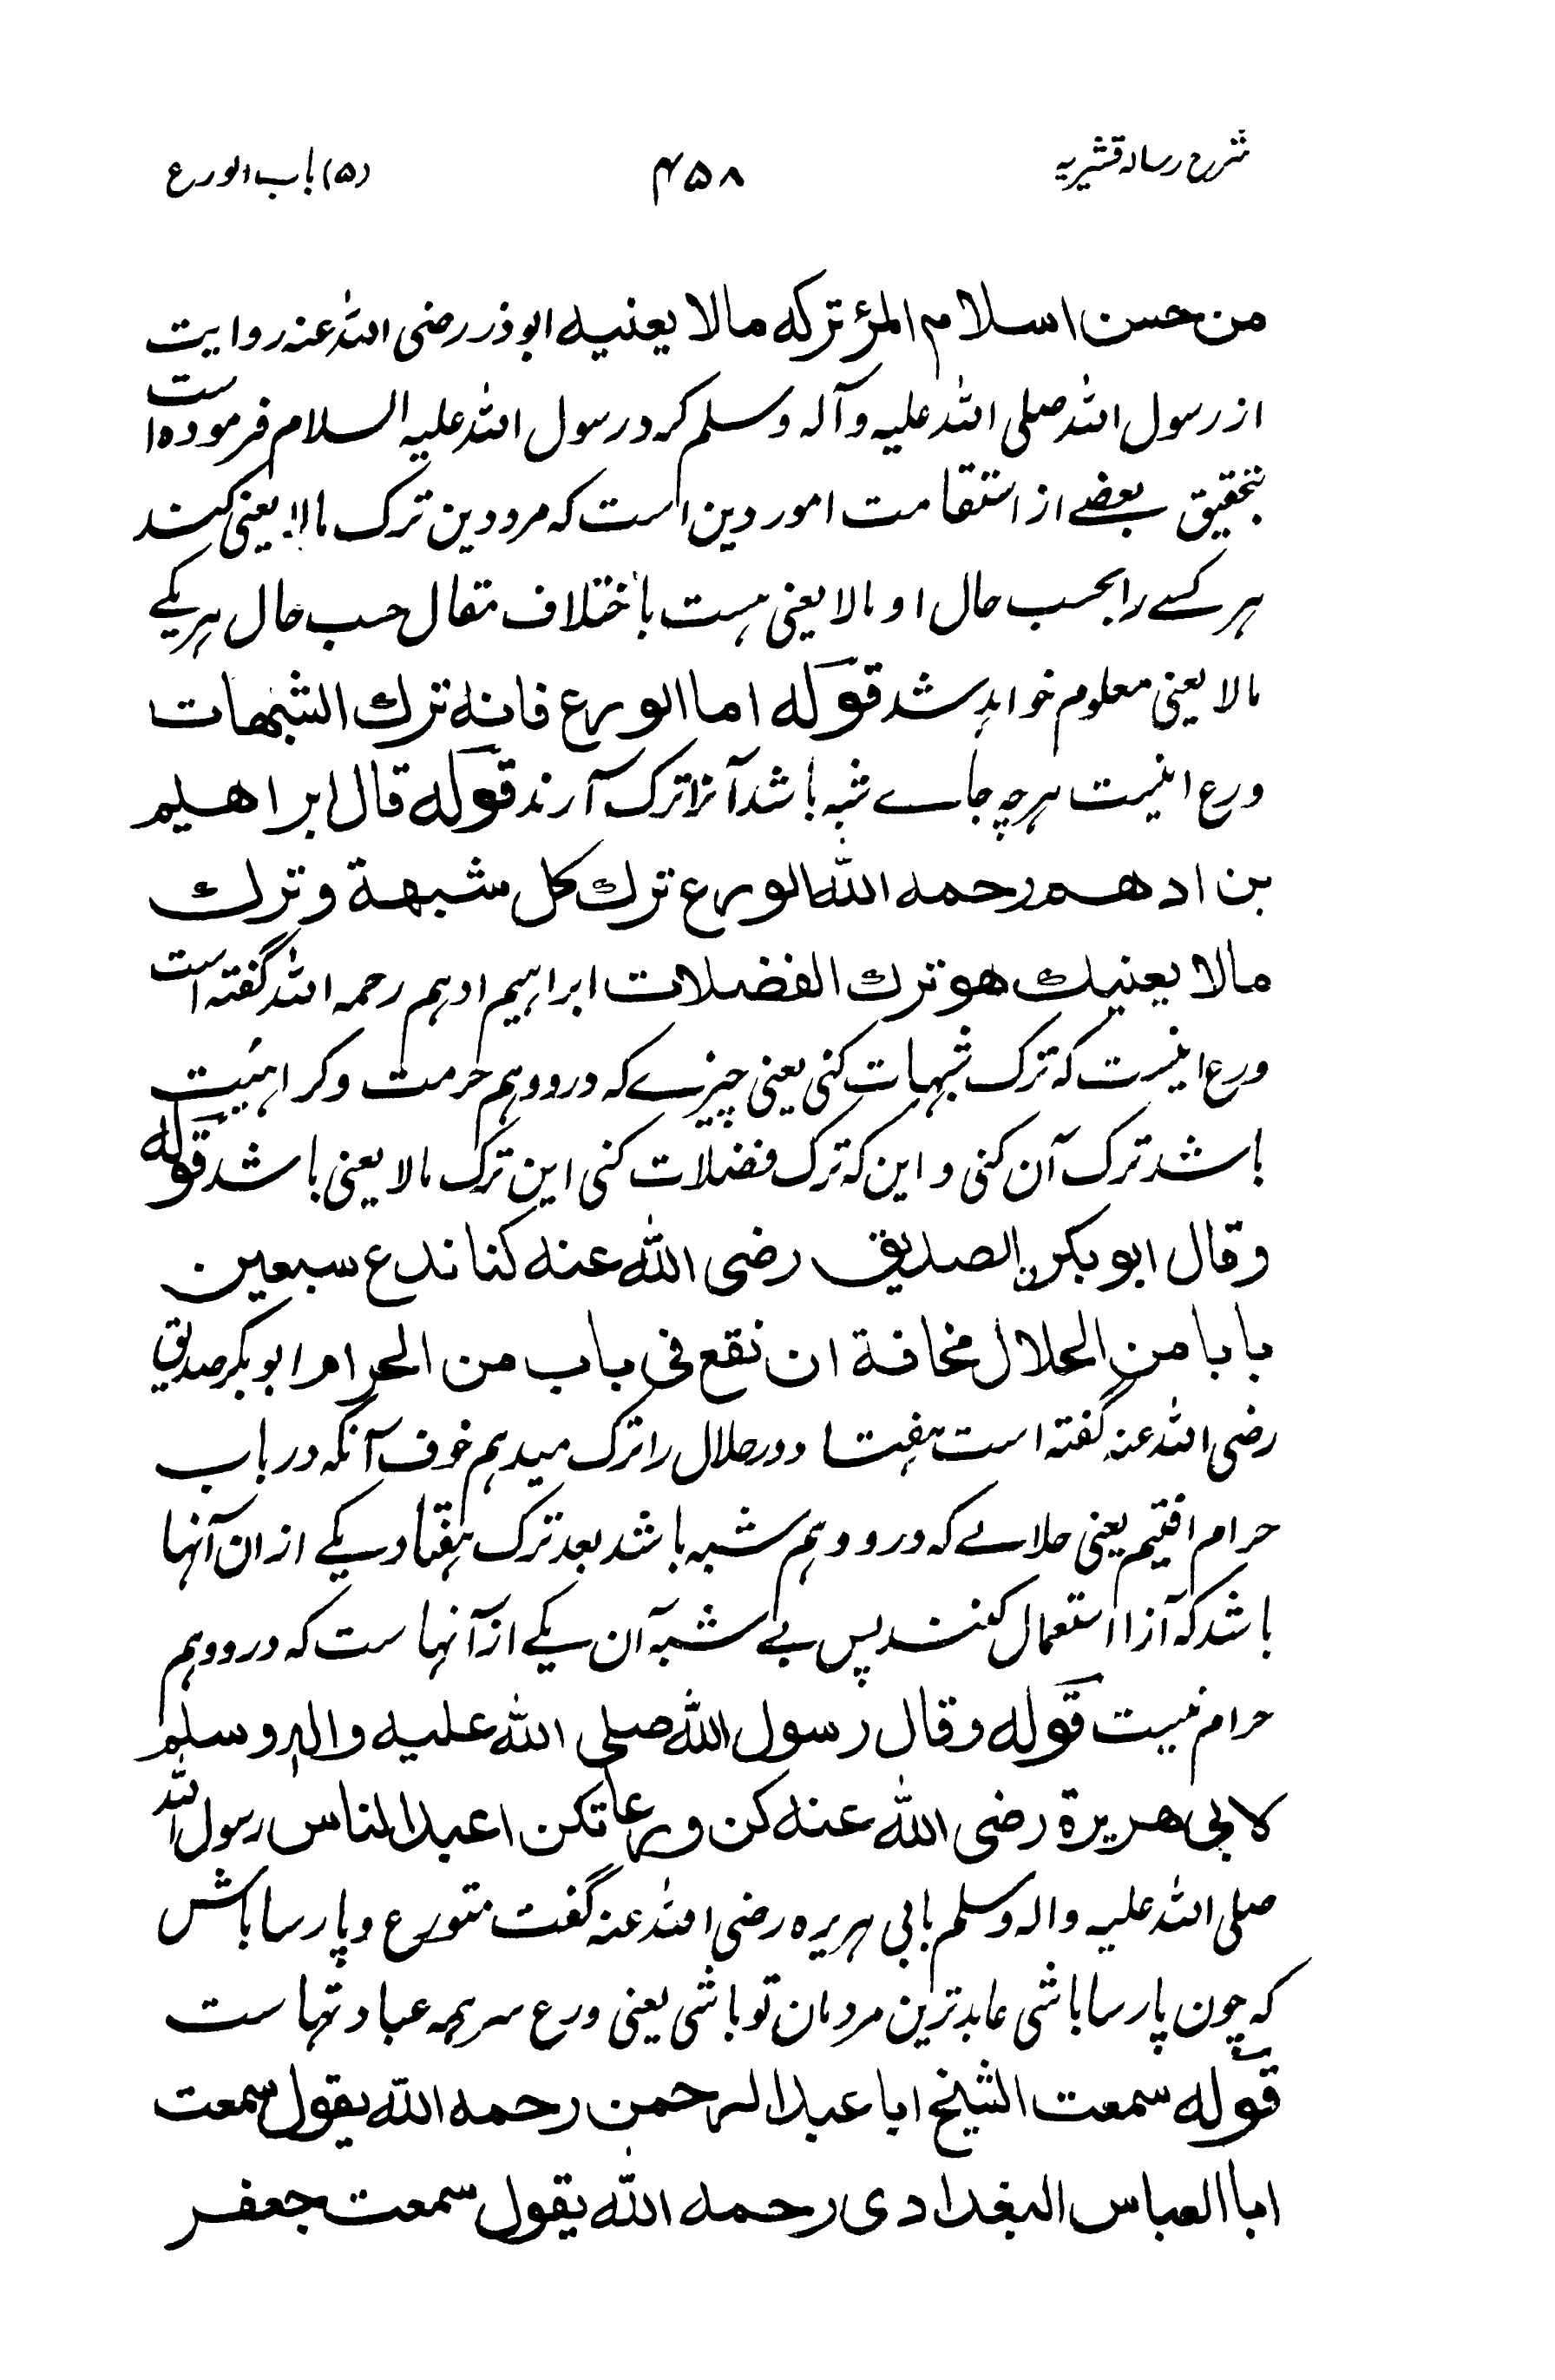 شرح رسالہ قشیریہ ۴۵۸ (۵) باب الورع
من حسن اسلام المرؤ ترکه مالا یعنیه ابوذر رضی اللہ عنہ روایت
از رسول اللہ صلی اللہ علیہ وآلہ وسلم کرد رسول اللہ علیہ السلام فرمودہ است
بتحقیق بعضے از استقامت امور دین است کہ مرد دین ترک مالا یعنی کند
ہر کسے را بحسب حال او مالا یعنی ہست باختلاف مقال حسب حال ہر یکے
مالا یعنی معلوم خواہد شد قوله اما الورع فانه ترك الشبهات
ورع اینست ہرچہ جاے شبہ باشد آنرا ترک آرند قوله قال ابراهیم
بن ادهم رحمه الله الورع ترك كل شبهة وترك
مالا یعنیك هو ترك الفضلات ابراہیم ادہم رحمہ اللہ گفتہ است
ورع اینست کہ ترک شبہات کنی یعنی چیزے کہ درو وہم حرمت وکراہیت
باشد ترک آن کنی و این کہ ترک فضلات کنی این ترک مالا یعنی باشد قوله
وقال ابوبکر ن الصدیق رضی الله عنه کنا ندع سبعین
بابا من الحلال مخافة ان نقع فی باب من الحرام ابوبکر صدیق
رضی اللہ عنہ گفتہ است ہفتاد در حلال را ترک میدہم خوف آنکہ در باب
حرام افتیم یعنی حلالے کہ درو وہم شبہ باشد بعد ترک ہفتاد یکے ازان آنہا
باشد کہ آنرا استعمال کنند پس بے شبہ آن یکے از آنہاست کہ درو وہم
حرام نیست قوله وقال رسول الله صلی الله علیه واله وسلم
لابی هریرة رضی الله عنه کن ورعا تکن اعبد الناس رسول اللہ
صلی اللہ علیہ والہ وسلم بابی ہریرہ رضی اللہ عنہ گفت متورع و پارسا باش
کہ چون پارسا باشی عابد ترین مردمان تو باشی یعنی ورع سر ہمہ عبادتہاست
قوله سمعت الشیخ ابا عبد الرحمن رحمه الله یقول سمعت
ابا العباس البغدادی رحمه الله یقول سمعت جعفر